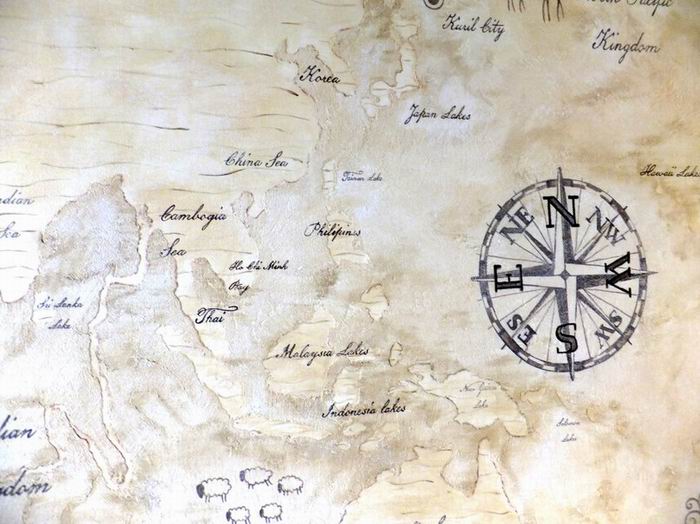 Pacific
Kuril City
Kingdom
Korea
Japan Lakes
China Sea
Taiwan Lake
Hawaii Lakes
dian
Sea
Cambogia
Sea
Philipines
Ho Chi Minh
Bay
Sri Lanka
Lake
Thai
N
NE
NW
E
W
ES
SW
S
Malaysia Lakes
Indonesia lakes
New Guinea
Lake
Solomon
Lakes
dian
dom